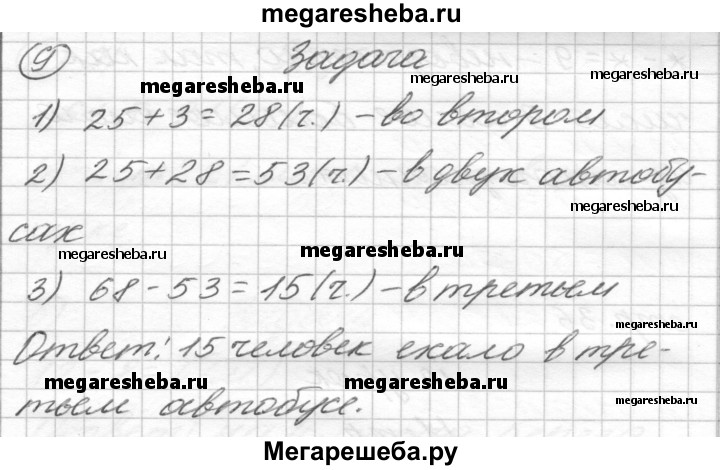 megaresheba.ru
9 Задача
megaresheba.ru megaresheba.ru megaresheba.ru
1) 25+3=28(ч.) – во втором
2) 25+28=53(ч.) – в двух автобу-
megaresheba.ru
сах
megaresheba.ru megaresheba.ru megaresheba.ru
3) 68-53=15(ч.) – в третьем
megaresheba.ru
Ответ: 15 человек ехало в тре-
megaresheba.ru megaresheba.ru megaresheba.ru
тьем автобусе.
Мегарешеба.ру